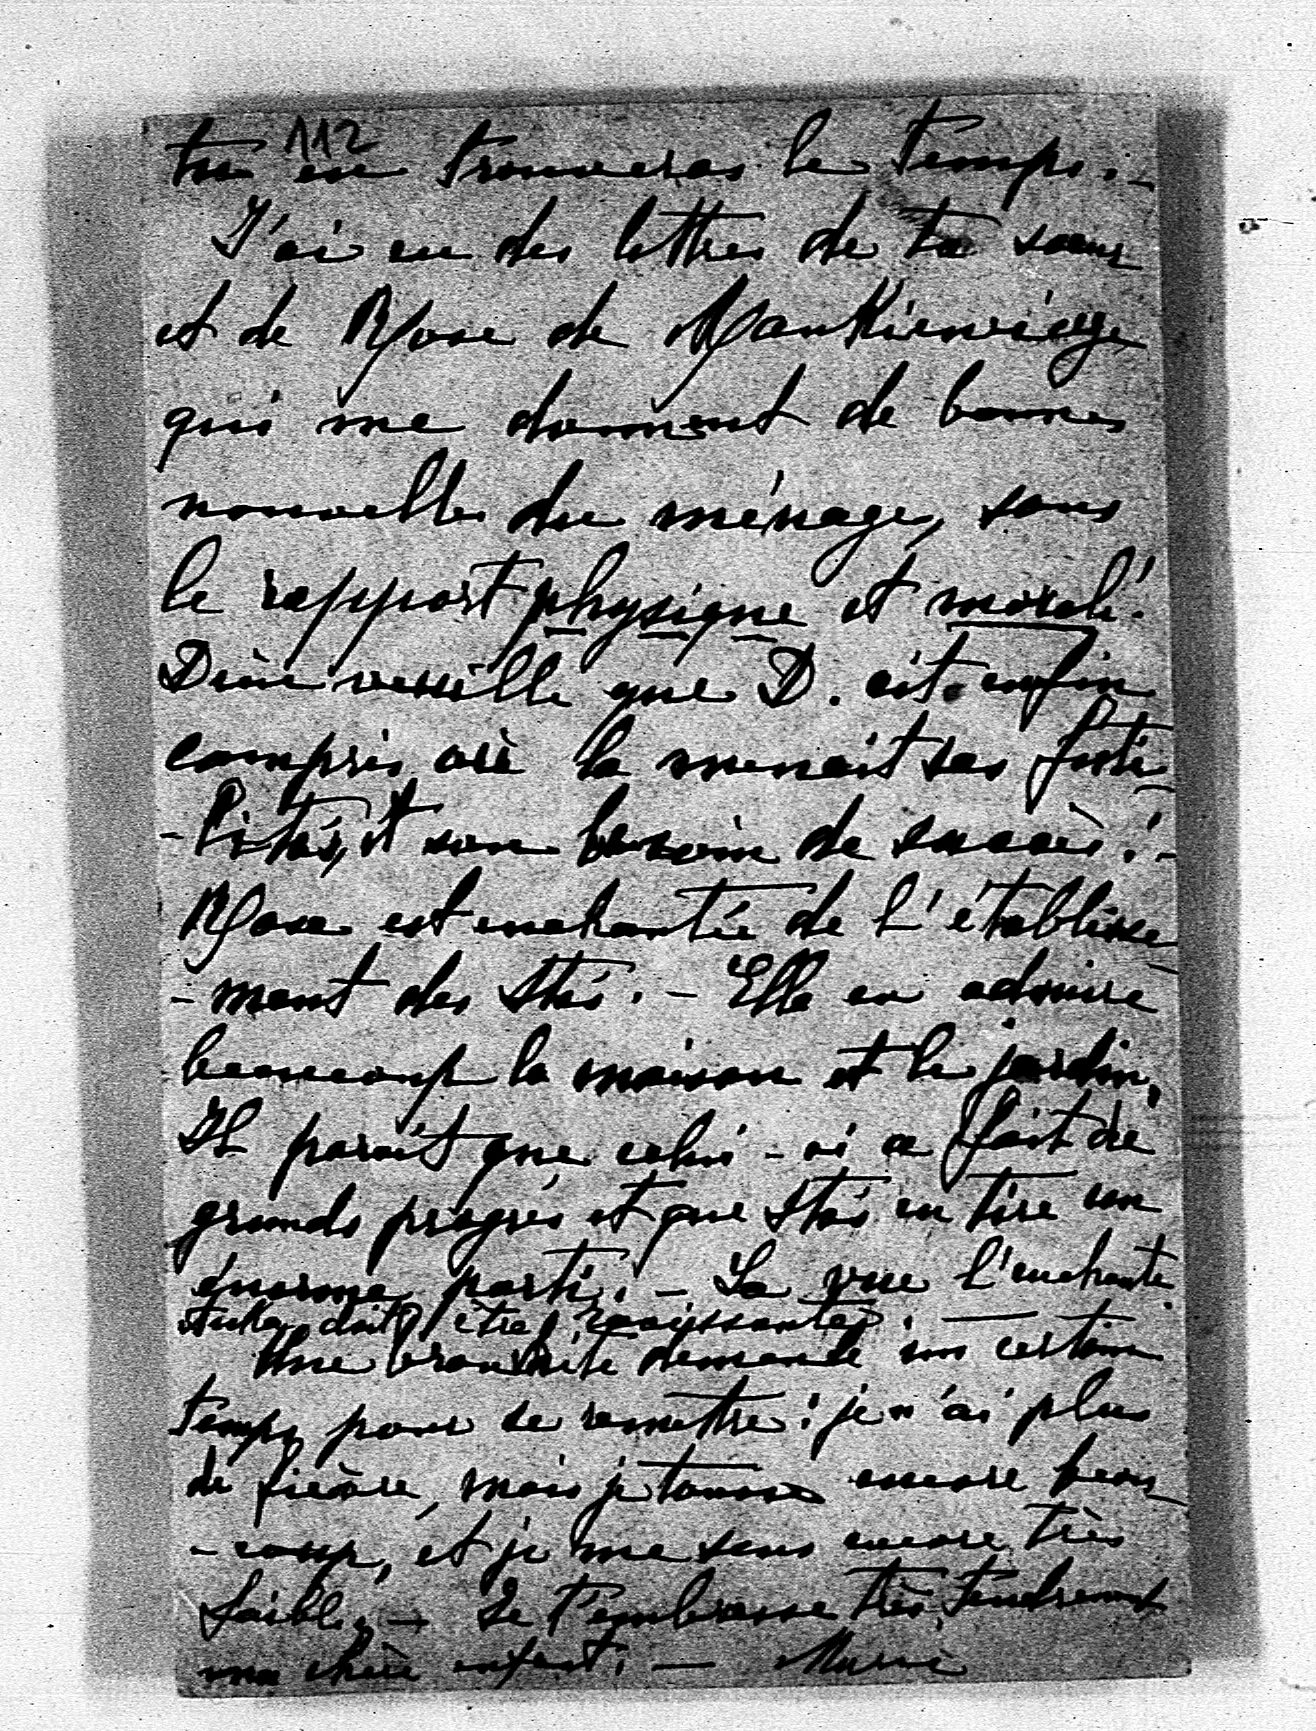 112
tu en trouveras le temps. -
J'ai eu des lettres de ta sœur
et de Rose de Mankiewicze
qui me donnent de bonnes
nouvelles du ménage, sous
le rapport physique et moral!
Dieu veuille que D. ait enfin
compris où la menait ses futi-
-lités, et son besoin de succès! -
Rose est enchantée de l'établisse-
-ment des Stas. - Elle en admire
beaucoup la maison et le jardin.
Il paraît que celui-ci a fait de
grands progrès et que Stas en tire un
énorme parti. - La vue l'enchante
doit être ravissante. —
Une bronchite demande un certain
temps pour se remettre: je n'ai plus
de fièvre, mais je tousse encore beau-
-coup, et je me sens encore très
faible. - Je t'embrasse très tendrement
ma chère enfant. —